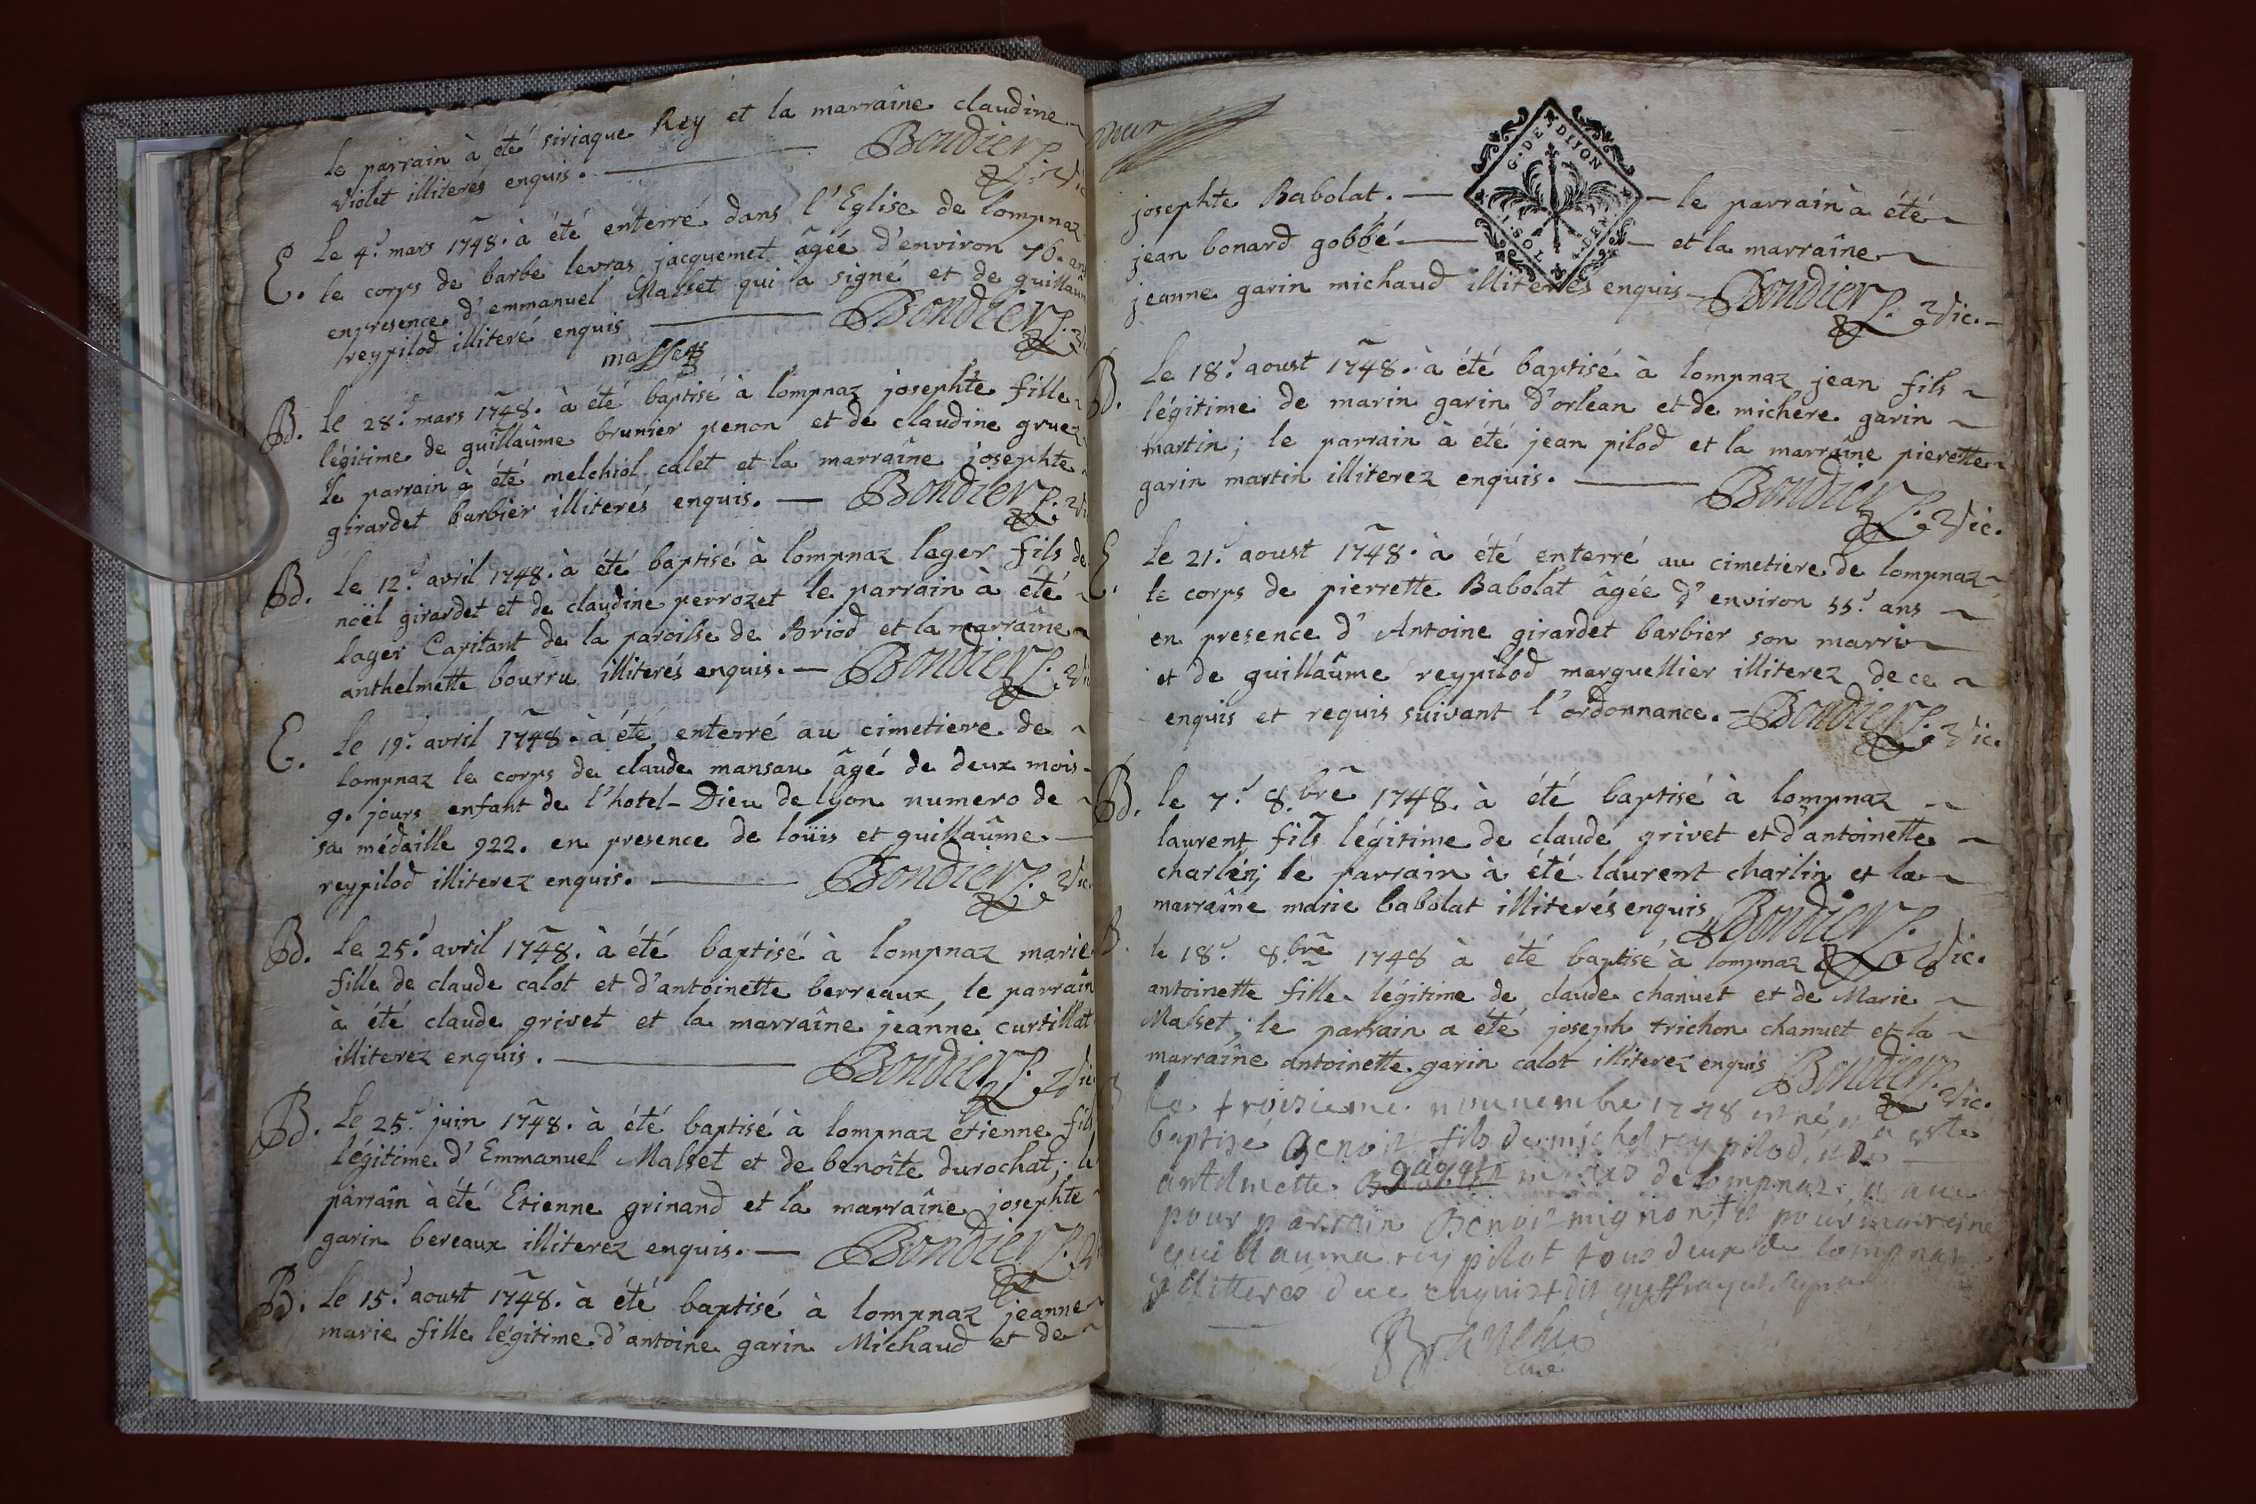 le parrain à été siriaque Rey et la marraine claudine
Violet illiterés enquis. Bondier p. Vic
E. Le 4.e mars 1748. à été enterré dans l'Eglise de lompnaz
le corps de barbe levras jacquemet âgée d'environ 76. ans
enpresence d'emmanuel Malset qui a signé et de guillaûm
reypilod illiteré enquis Bondier p. Vi
massets
Bd. Le 28.e mars 1748. à été baptisé à lompnaz josephte fille
légitime de guillaûme brunier penon et de claudine gruez
le parrain à été melchiol calet et la marraîne josephte
girardet barbier illiterés enquis. Bondier p. Vi
Bd. Le 12.e avril 1748. à été baptisé à lompnaz lager fils de
noël girardet et de claudine perrozet le parrain à été
lager Capitant de la paroisse de Briod et la marraîne
anthelmette bourru illiterés enquis. Bondier p. Vi
E. Le 19.e avril 1748. à été enterré au cimetiere de
lompnaz le corps de claude mansau âgé de deux mois
9. jours enfant de l'hotel-Dieu de lyon numero de
sa médaille 922. en presence de loüis et guillaûme
reypilod illiterez enquis. Bondier p. Vic
Bd. Le 25.e avril 1748. à été baptisé à lompnaz marie
fille de claude calot et d'antoinette berreaux, le parrain
à été claude grivet et la marraîne jeánne curtillat
illiterez enquis. Bondier p. Vic
Bd. Le 25.e juin 1748. à été baptisé à lompnaz etienne fils
légitime d'Emmanuel Malset et de benoîte durochat; le
parrain à été Etienne grinand et la marraîne josephte
garin bereaux illiterez enquis. Bondier p. V
Bd. Le 15.e aoust 1748. à été baptisé à lompnaz jeanne
marie fille légitime d'antoine garin Michaud et de
Deux
G. DE DIJON
josephte Babolat. le parrain à été
jean bonard gobbé et la marraîne
jeanne garin michaud illiterés enquis Bondier p. Vic.
Bd. Le 18.e aoust 1748. à été baptisé à lompnaz jean fils
légitime de marin garin d'orlean et de michere garin
martin; le parrain à été jean pilod et la marraîne pierette
garin martin illiterez enquis. Bondier p. Vic.
E. Le 21.e aoust 1748. à été enterré au cimetiere de lompnaz
le corps de pierrette Babolat âgée d'environ 55.e ans
en presence d'Antoine girardet barbier son marri
et de guillaûme reypilod marguellier illiterez de ce
enquis et requis suivant l'ordonnance. Bondier p. Vic.
Bd. le 7.e 8.bre 1748. à été baptisé à lompnaz
laurent fils légitime de claude grivet et d'antoinette
charlin; le parrain à été laurent charlin et la
marraîne marie babolat illiterés enquis Bondier p. Vic.
B. le 18.e 8.bre 1748 à été baptisé à lompnaz
antoinette fille légitime de claude chanuet et de Marie
Malset; le parrain a été joseph trichon chanuet et la
marraîne antoinette garin calot illiterez enquis Bondier p. Vic.
Le troisieme nouuembre 1748 est né et a esté
baptizé Benoit fils de michel reypilod et d
antelmette mariés de lompnaz il a eu
pour parrain Benoit mignon et pour marraine
guillauma reypilot tous deux de lompnaz
illitteres de ce enquis
cure